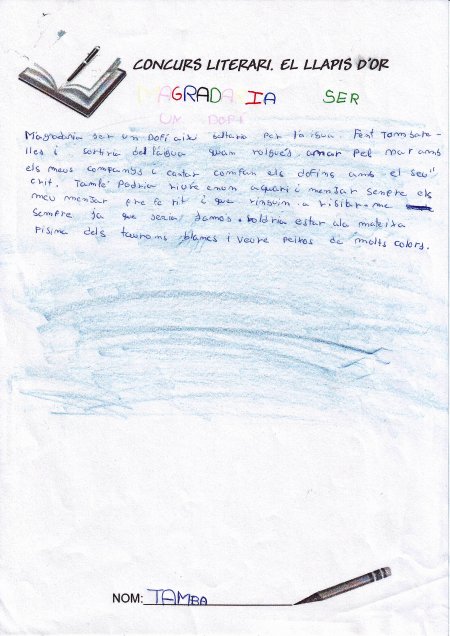 CONCURS LITERARI. EL LLAPIS D'OR
MAGRADARIA SER
UN DOFI
Magradaria ser un dofi aixi saltaria per laigua. Fent Tombare-
lles i sortiria del laigua quan volgués, anar pel mar amb
els meus companys i cantar com fan els dofins amb el seu
crit. També Podria viure en un aquari i menjar senpre els
meu menjar pre fe rit i que vinguin a visitar-me
sempre ja que seria famós. voldria estar ala mateixa
pisina dels taurons blancs i veure peixos de molts colors.
NOM: TAMBA